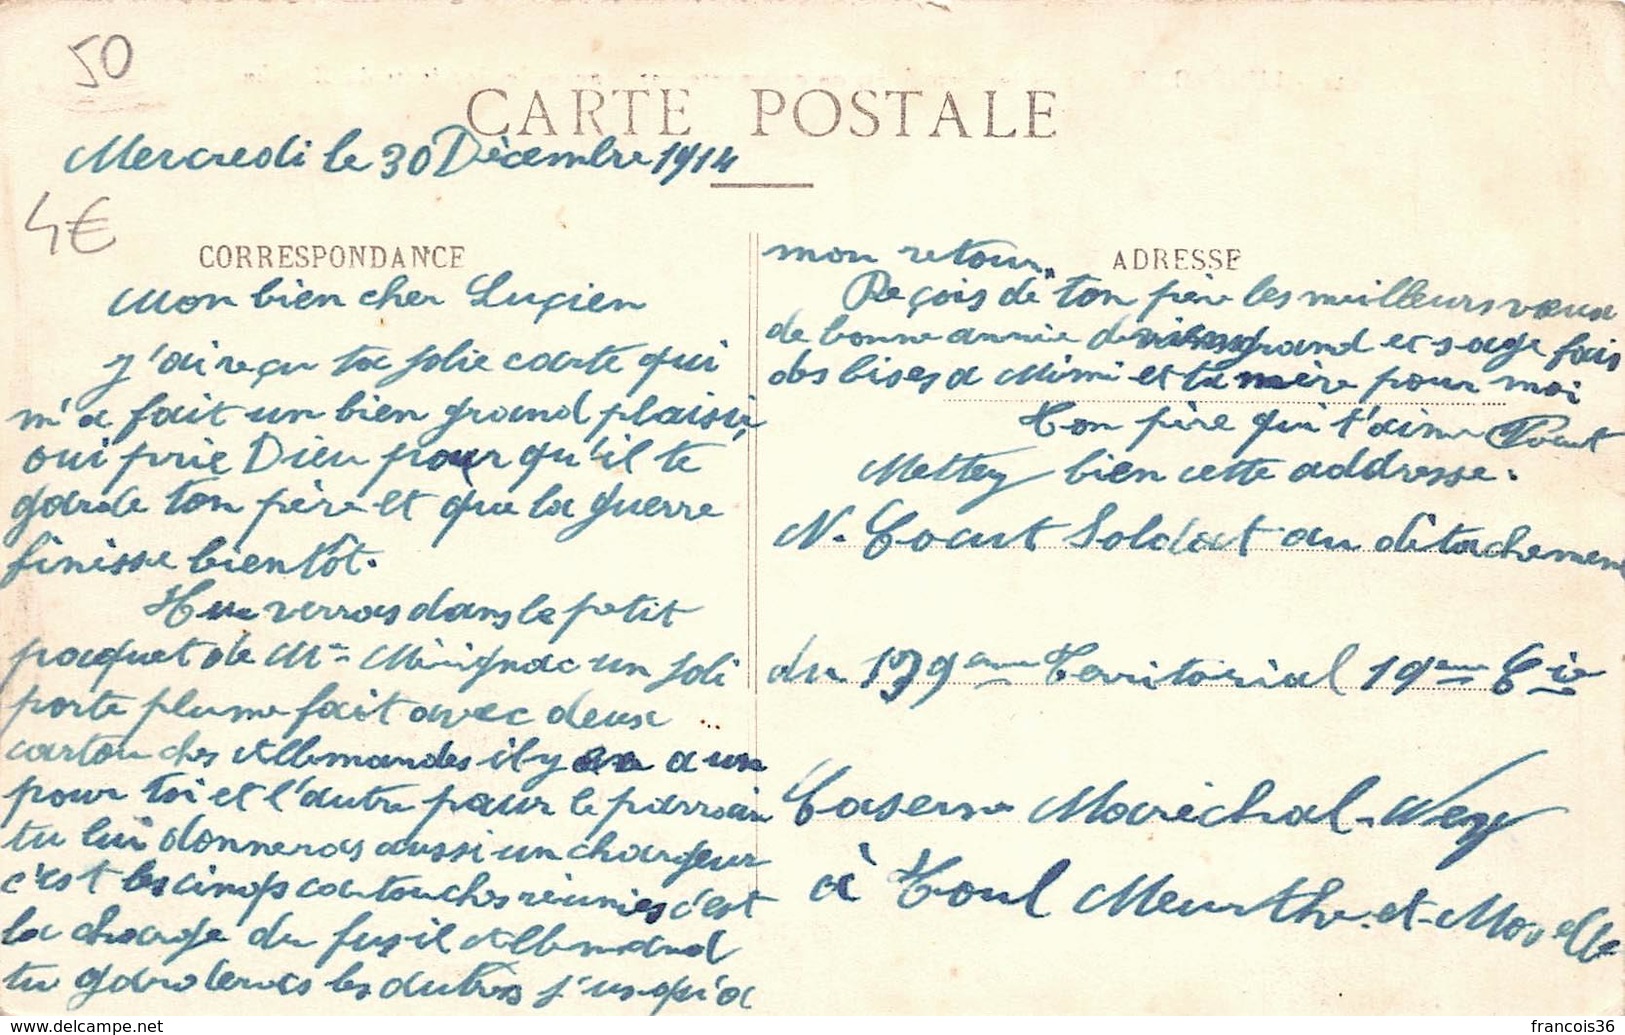 50
CARTE POSTALE
Mercredi le 30 Décembre 1914
4€
CORRESPONDANCE
Mon bien cher Luçien
j'ai reçu ta jolie carte qui
m'a fait un bien grand plaisir,
oui prie Dieu pour qu'il te
garde ton père et que la guerre
finisse bientôt.
Tu verras dans le petit
paquet de Mr Mérignac un joli
porte plume fait avec deux
cartouches Allemandes il y en a un
pour toi et l'autre pour le parrain
tu lui donneras aussi un chargeur
c'est les cinqs cartouches réunies c'est
la charge du fusil Allemand
tu garderas les autres j'usqu'a
mon retour.
ADRESSE
Reçois de ton père les meilleurs vœux
de bonne année deviens grand et sage fais
des bises a Mimi et ta mère pour moi
Ton père qui t'aime
Mettez bien cette addresse:
N. Cocut Soldat au détachement
du 139eme Territorial 19eme Cie
Caserne Maréchal-Ney
à Toul Meurthe-et-Moselle
francois36
www.delcampe.net